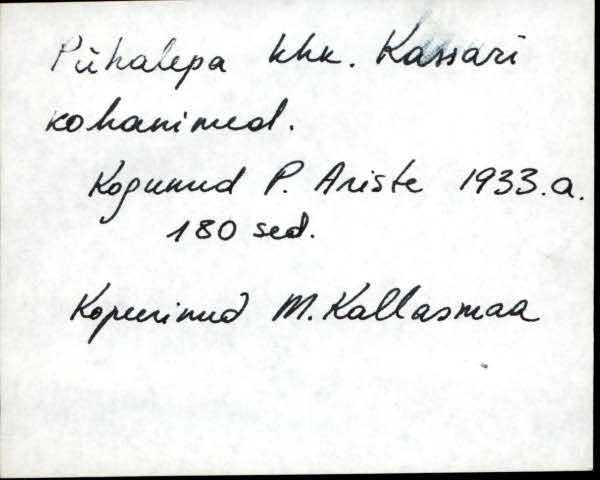 Pühalepa khk. Kassari
kohanimed.
Kogunud P. Ariste 1933.a.
180 sed.
Kopeerinud M. Kallasmaa